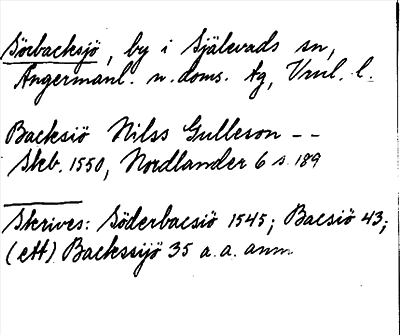 Sörbacksjö, by i Själevads sn,
Ångermanl. n. doms. tg, Vnrl. l.
Backsiö Nilss Gulleson - -
Skb. 1550, Nordlander 6 s. 189
Skrives: Söderbacsiö 1545; Bacsiö 43;
(ett) Backssijö 35 a. a. anm.